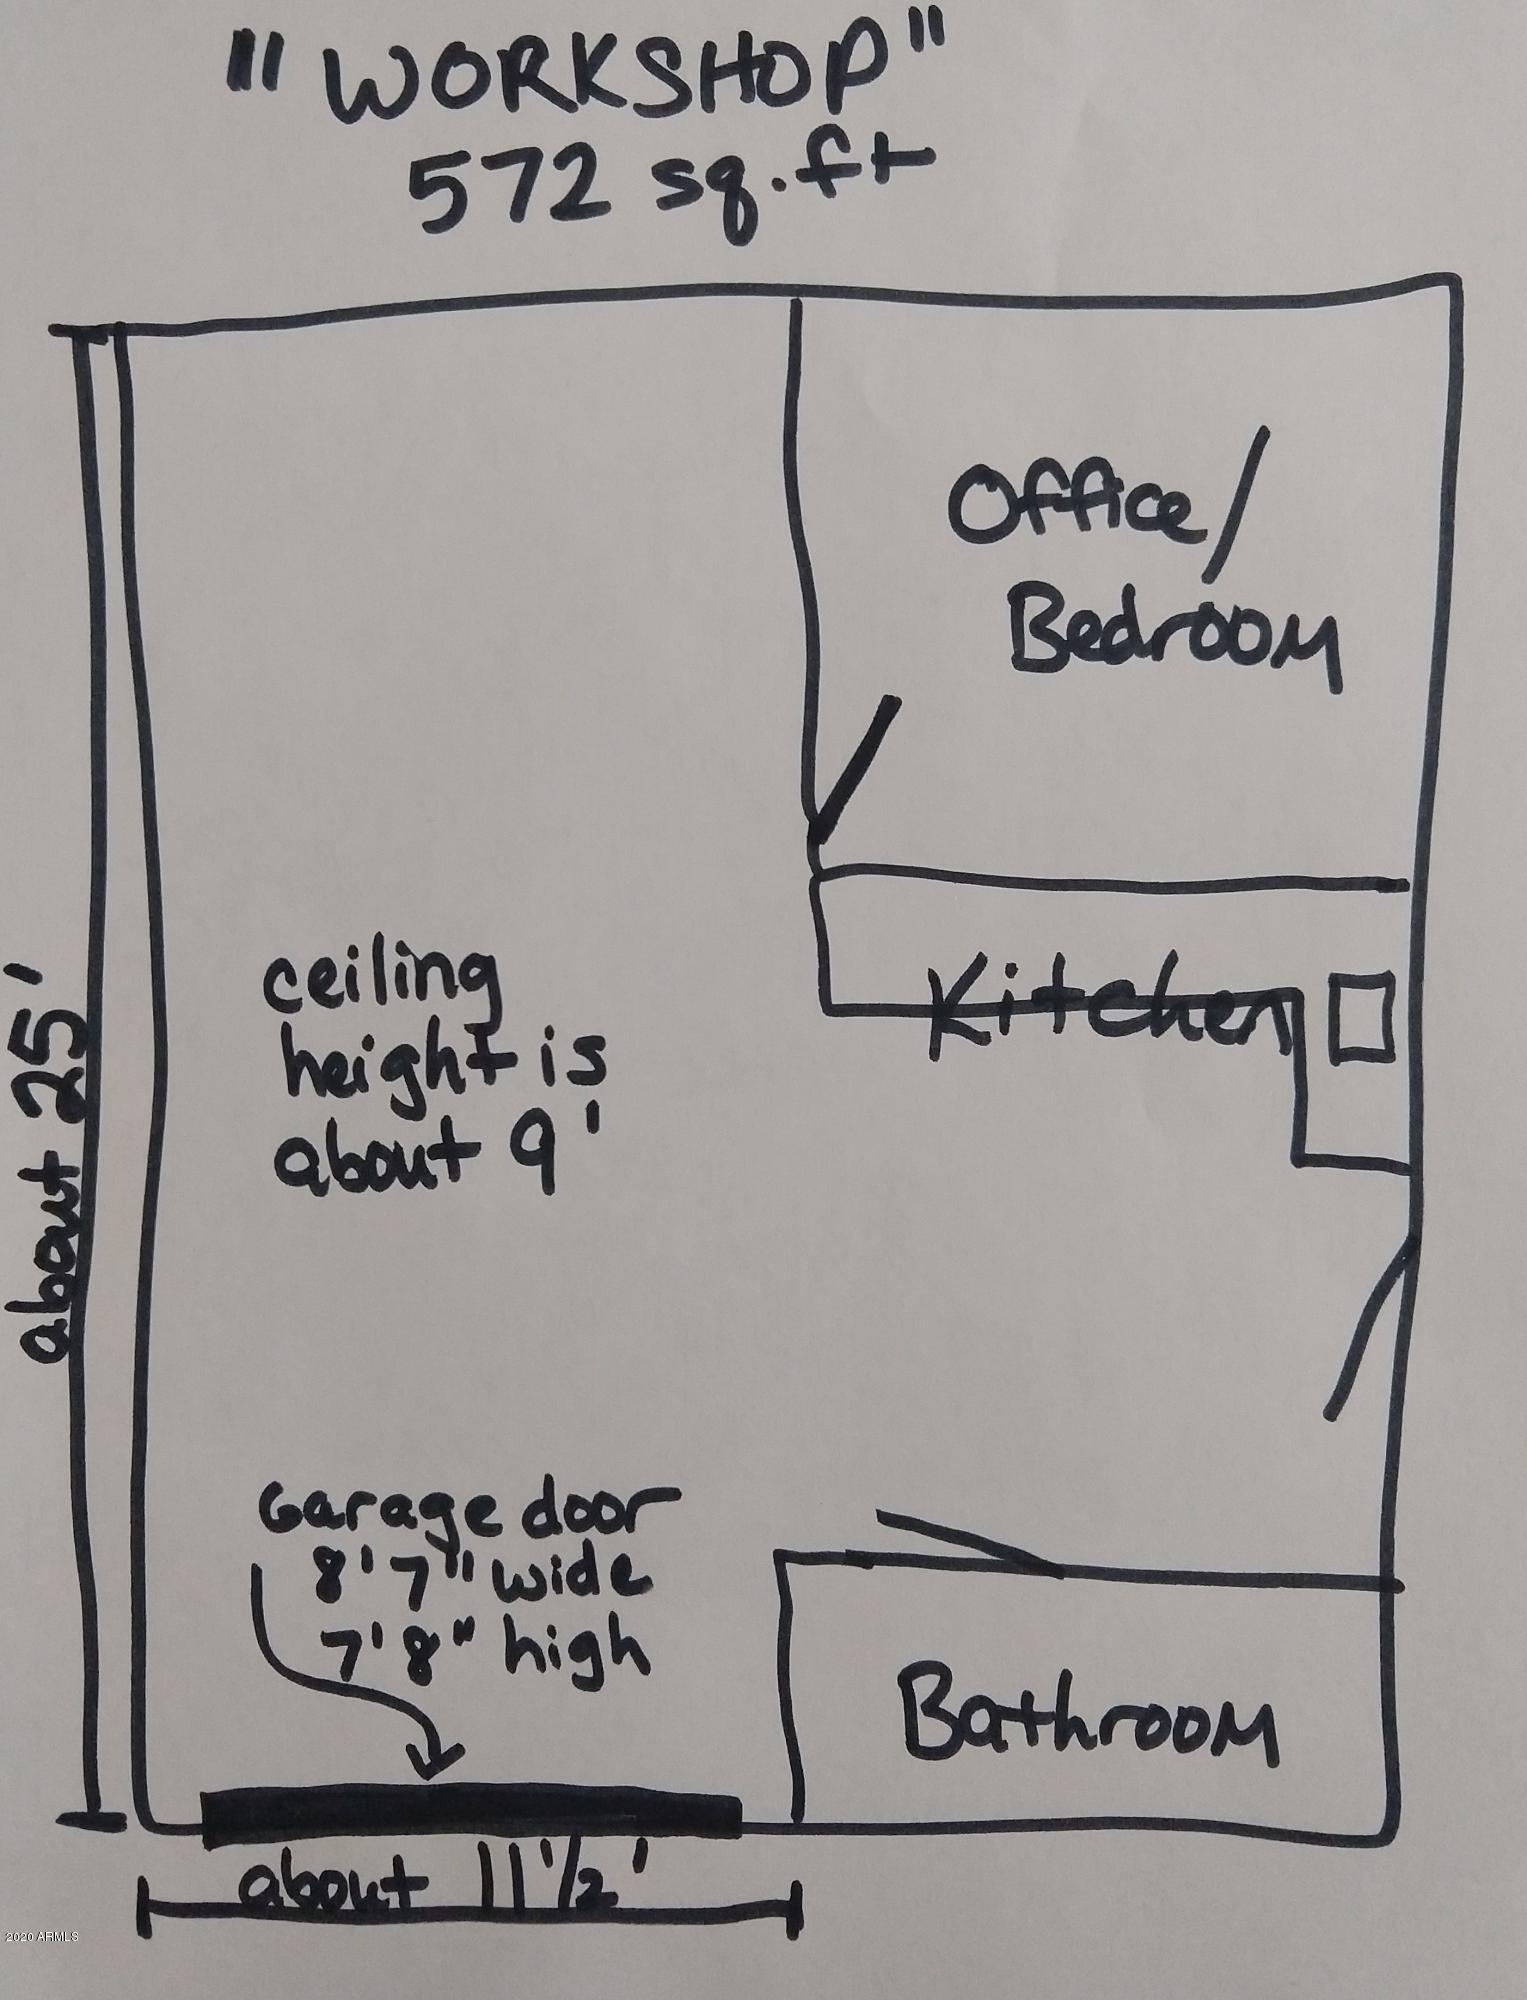 "WORKSHOP"
572 sq.ft
Office/
Bedroom
Kitchen
ceiling
height is
about 9'
about 25'
Garage door
8'7" wide
7'8" high
Bathroom
about 11 1/2'
2020 ARMLS